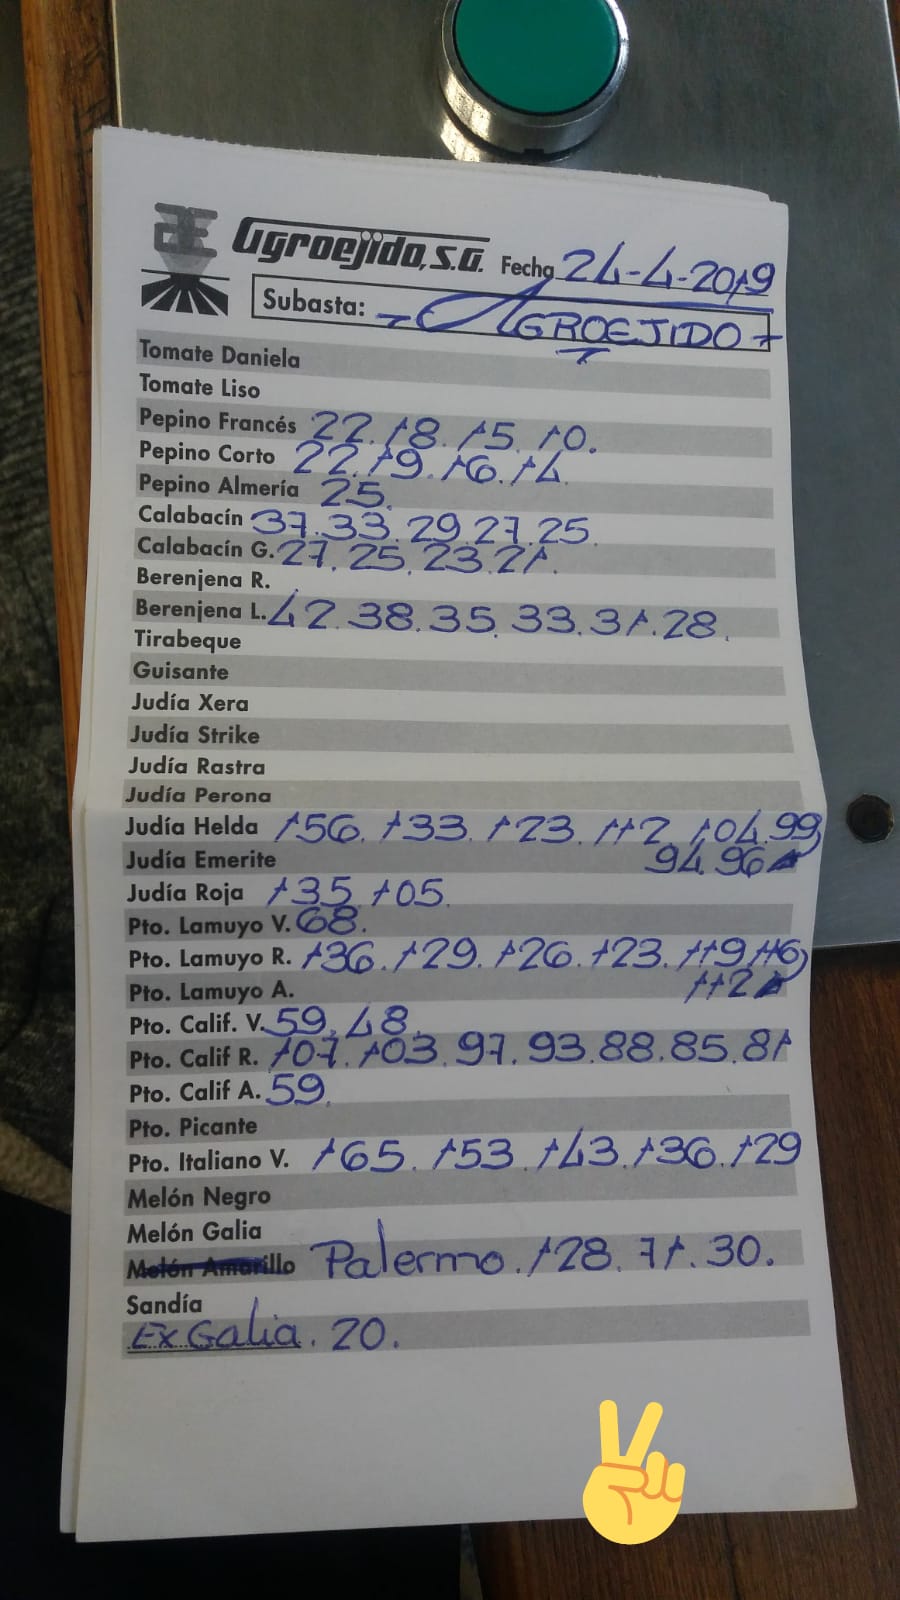 Agroejido, S.A. Fecha 24-4-2019
Subasta: -AGROEJIDO-
Tomate Daniela
Tomate Liso
Pepino Francés 22. 18. 15. 10.
Pepino Corto 22. 19. 16. 14.
Pepino Almería 25.
Calabacín 37. 33. 29. 27. 25.
Calabacín G. 27. 25. 23. 21.
Berenjena R.
Berenjena L. 42. 38. 35. 33. 31. 28.
Tirabeque
Guisante
Judía Xera
Judía Strike
Judía Rastra
Judía Perona
Judía Helda 156. 133. 123. 112. 104. 99
Judía Emerite 94. 96
Judía Roja 135. 105.
Pto. Lamuyo V. 68.
Pto. Lamuyo R. 136. 129. 126. 123. 119. 116
Pto. Lamuyo A. 112
Pto. Calif. V. 59. 48.
Pto. Calif R. 107. 103. 97. 93. 88. 85. 81
Pto. Calif A. 59.
Pto. Picante
Pto. Italiano V. 165. 153. 143. 136. 129
Melón Negro
Melón Galia
Melón Amarillo Palermo. 128. 71. 30.
Sandía
Ex Galia. 20.